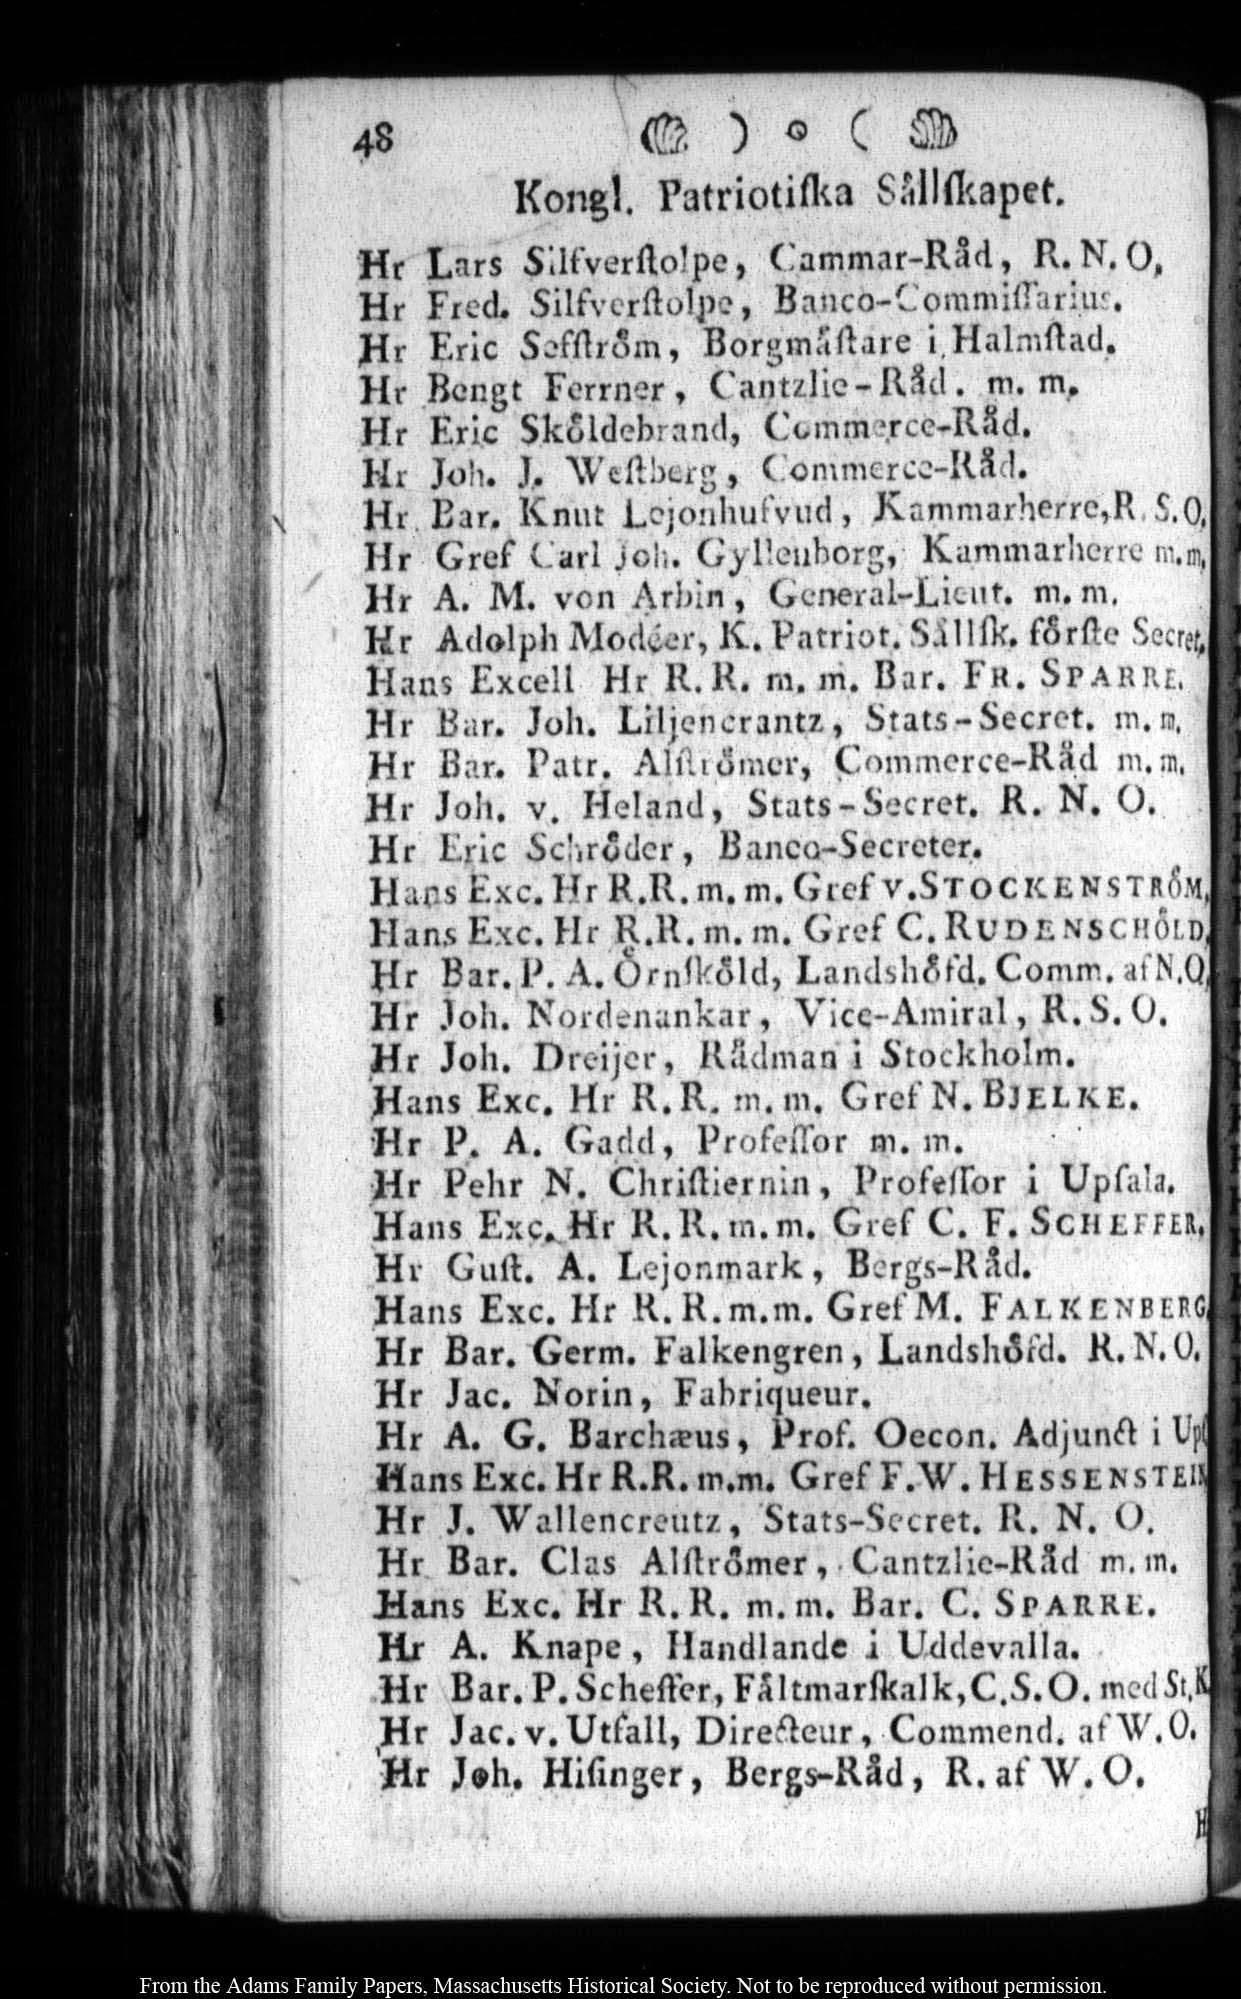 48 ) ʘ (
Kongl. Patriotiſka Sållſkapet.
Hr Lars Silfverſtolpe, Cammar-Råd, R. N. O.
Hr Fred. Silfverſtolpe, Banco-Commiſſarius.
Hr Eric Sefſtrôm, Borgmåſtare i Halmſtad.
Hr Bengt Ferrner, Cantzlie-Råd. m. m.
Hr Eric Skôldebrand, Commerce-Råd.
Hr Joh. J. Weſtberg, Commerce-Råd.
Hr Bar. Knut Lejonhufvud, Kammarherre, R. S. O.
Hr Gref Carl Joh. Gyllenborg, Kammarherre m. m.
Hr A. M. von Arbin, General-Lieut. m. m.
Hr Adolph Modéer, K. Patriot. Sållſk. fôrſte Secret.
Hans Excell Hr R. R. m. m. Bar. FR. SPARRE.
Hr Bar. Joh. Liljencrantz, Stats-Secret. m. m.
Hr Bar. Patr. Alſtrômer, Commerce-Råd m. m.
Hr Joh. v. Heland, Stats-Secret. R. N. O.
Hr Eric Schrôder, Banco-Secreter.
Hans Exc. Hr R. R. m. m. Gref v. STOCKENSTRÔM.
Hans Exc. Hr R. R. m. m. Gref C. RUDENSCHÔLD.
Hr Bar. P. A. Ôrnſkôld, Landshôfd. Comm. af N. O.
Hr Joh. Nordenankar, Vice-Amiral, R. S. O.
Hr Joh. Dreijer, Rådman i Stockholm.
Hans Exc. Hr R. R. m. m. Gref N. BJELKE.
Hr P. A. Gadd, Profeſſor m. m.
Hr Pehr N. Chriſtiernin, Profeſſor i Upſala.
Hans Exc. Hr R. R. m. m. Gref C. F. SCHEFFER.
Hr Guſt. A. Lejonmark, Bergs-Råd.
Hans Exc. Hr R. R. m. m. Gref M. FALKENBERG.
Hr Bar. Germ. Falkengren, Landshôfd. R. N. O.
Hr Jac. Norin, Fabriqueur.
Hr A. G. Barchæus, Prof. Oecon. Adjunct i Upſ
Hans Exc. Hr R. R. m. m. Gref F. W. HESSENSTEIN
Hr J. Wallencreutz, Stats-Secret. R. N. O.
Hr Bar. Clas Alſtrômer, Cantzlie-Råd m. m.
Hans Exc. Hr R. R. m. m. Bar. C. SPARRE.
Hr A. Knape, Handlande i Uddevalla.
Hr Bar. P. Scheffer, Fåltmarſkalk, C. S. O. med St. K
Hr Jac. v. Utfall, Directeur, Commend. af W. O.
Hr Joh. Hiſinger, Bergs-Råd, R. af W. O.
H
From the Adams Family Papers, Massachusetts Historical Society. Not to be reproduced without permission.